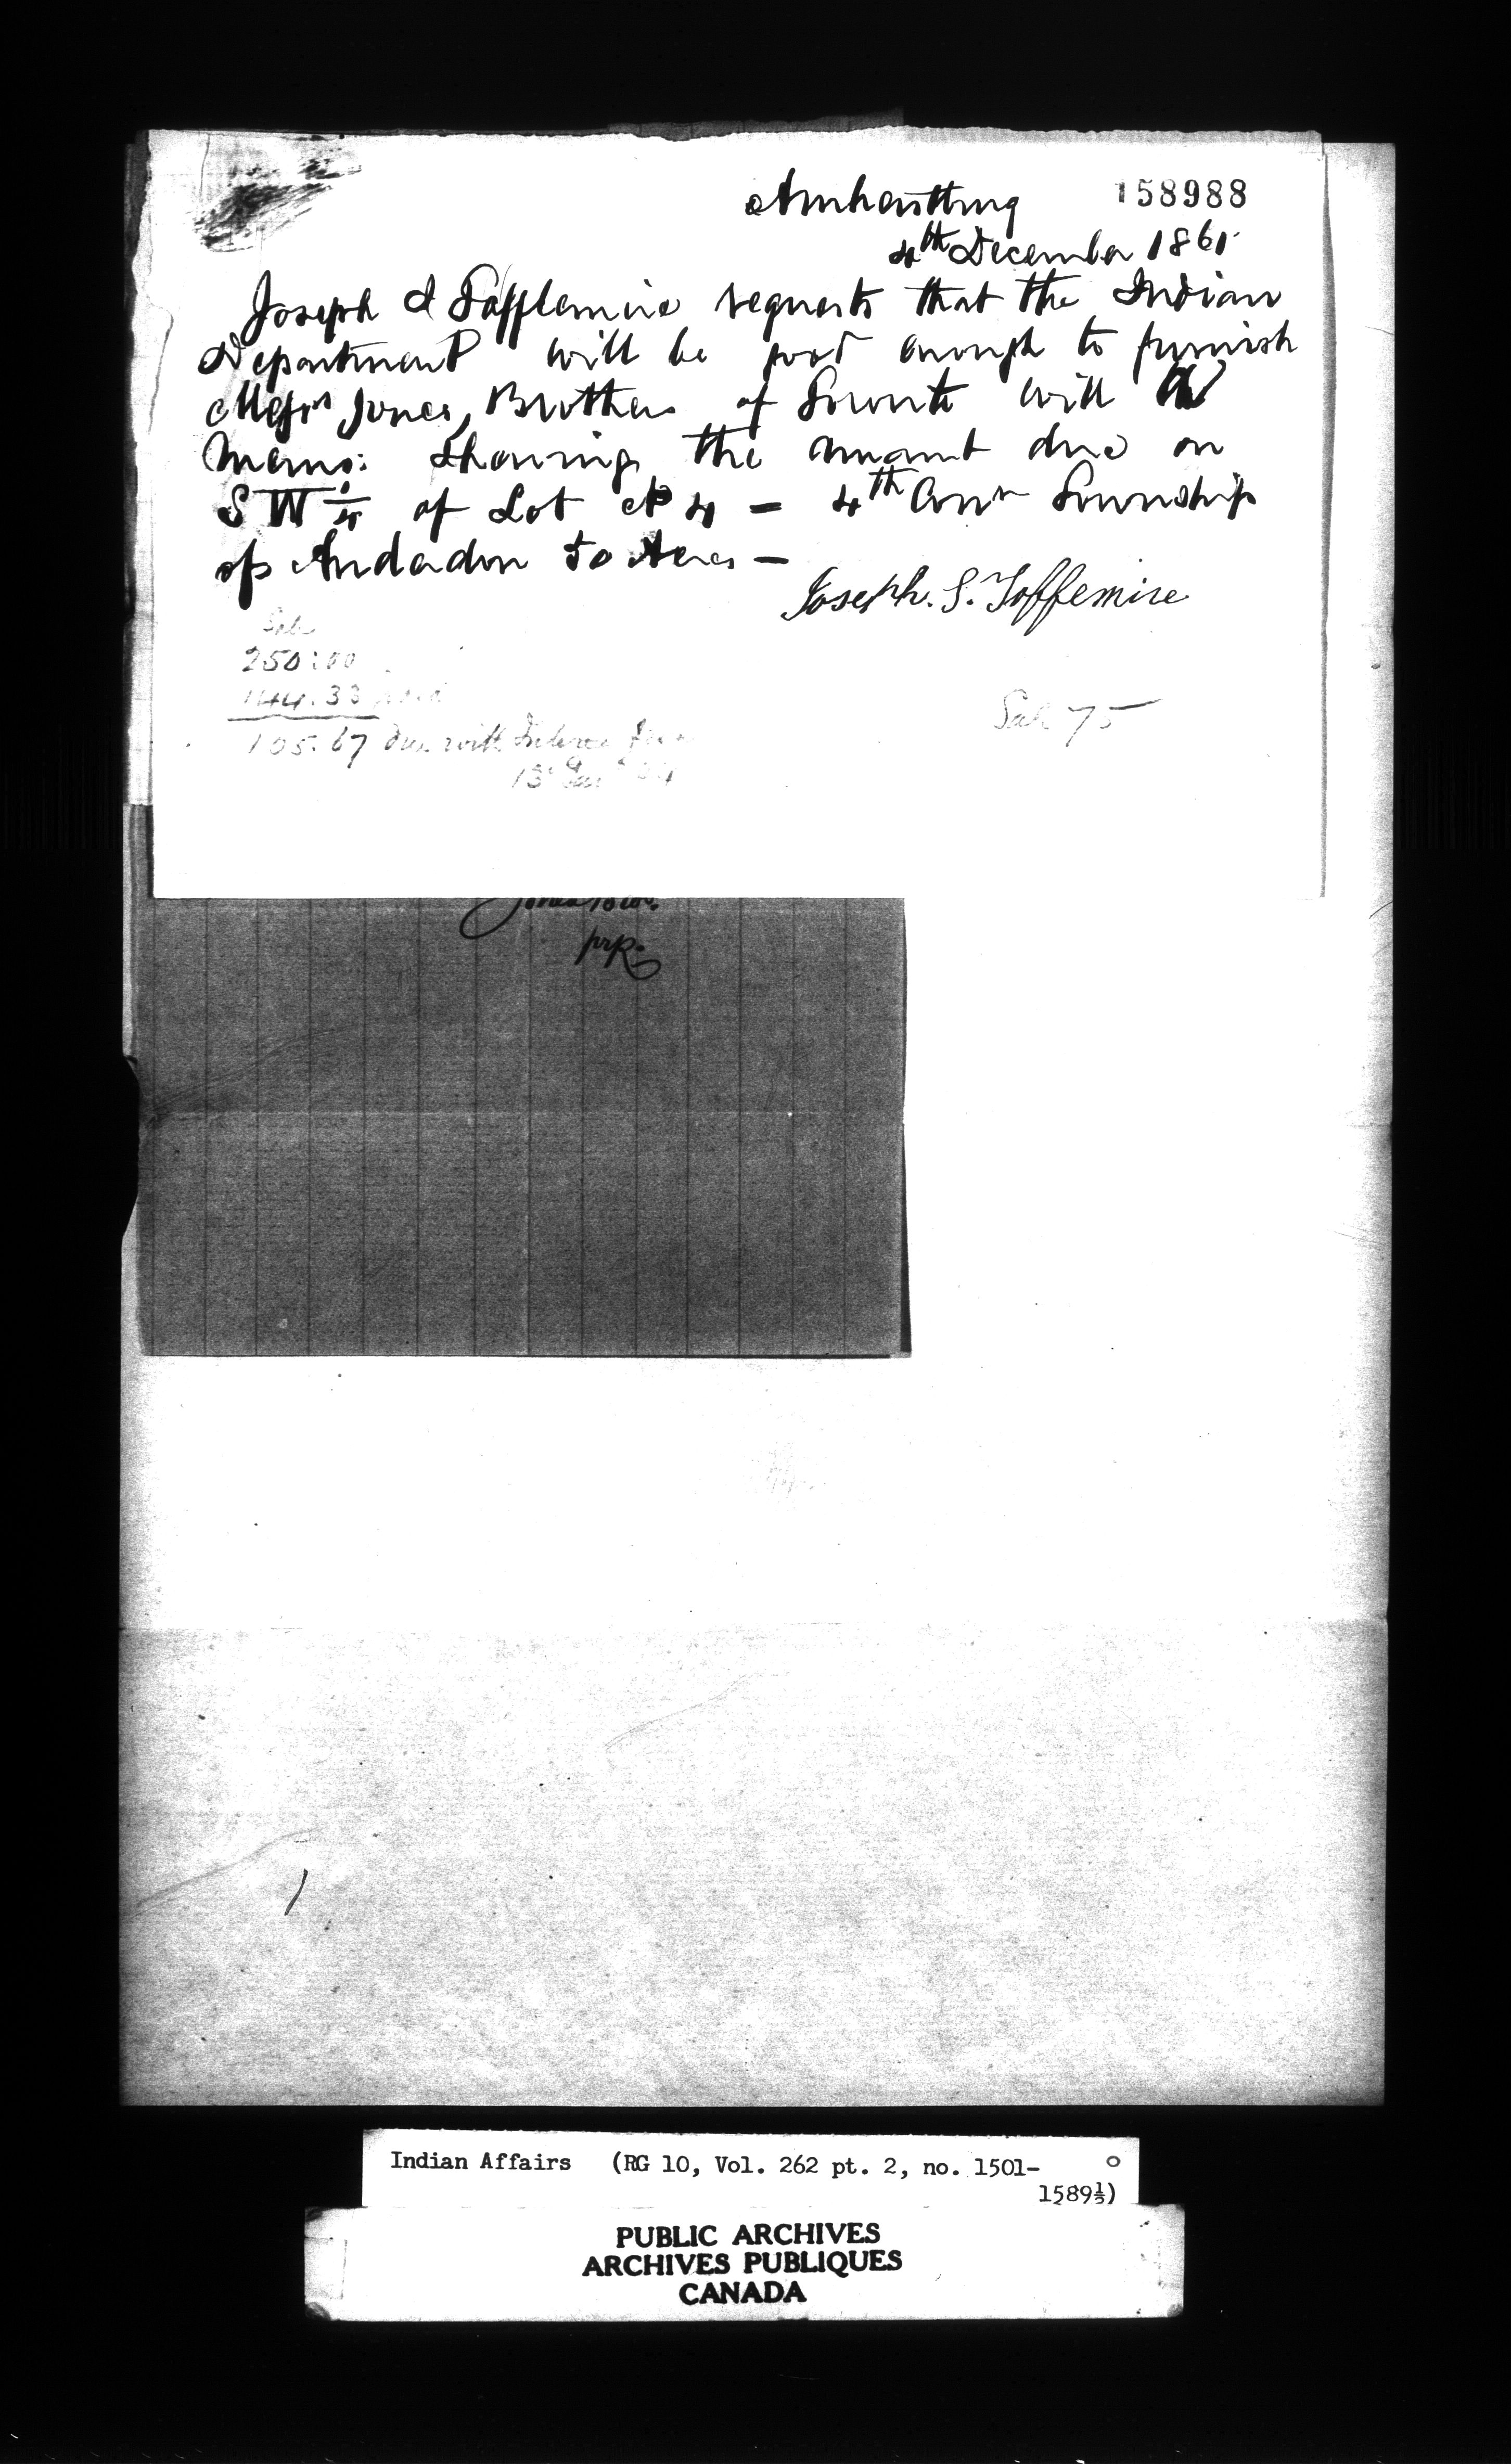 158988
Amherstburg
4th December 1861
Joseph S Tofflemire requests that the Indian
Department will be good enough to furnish
Messrs Jones, Brothers of Toronto with a
Memo: Showing the amount due on
S W ¼ of Lot No 4 — 4th Conn Township
of Anderdon 50 Acres —
Joseph. S. Toffemire
Sale
250:00
144.33 paid
105.67 due with Interest from
13 Jany
Sale 75
Jones Bros.
prR.
Indian Affairs (RG 10, Vol. 262 pt. 2, no. 1501-
1589⅓)
PUBLIC ARCHIVES
ARCHIVES PUBLIQUES
CANADA